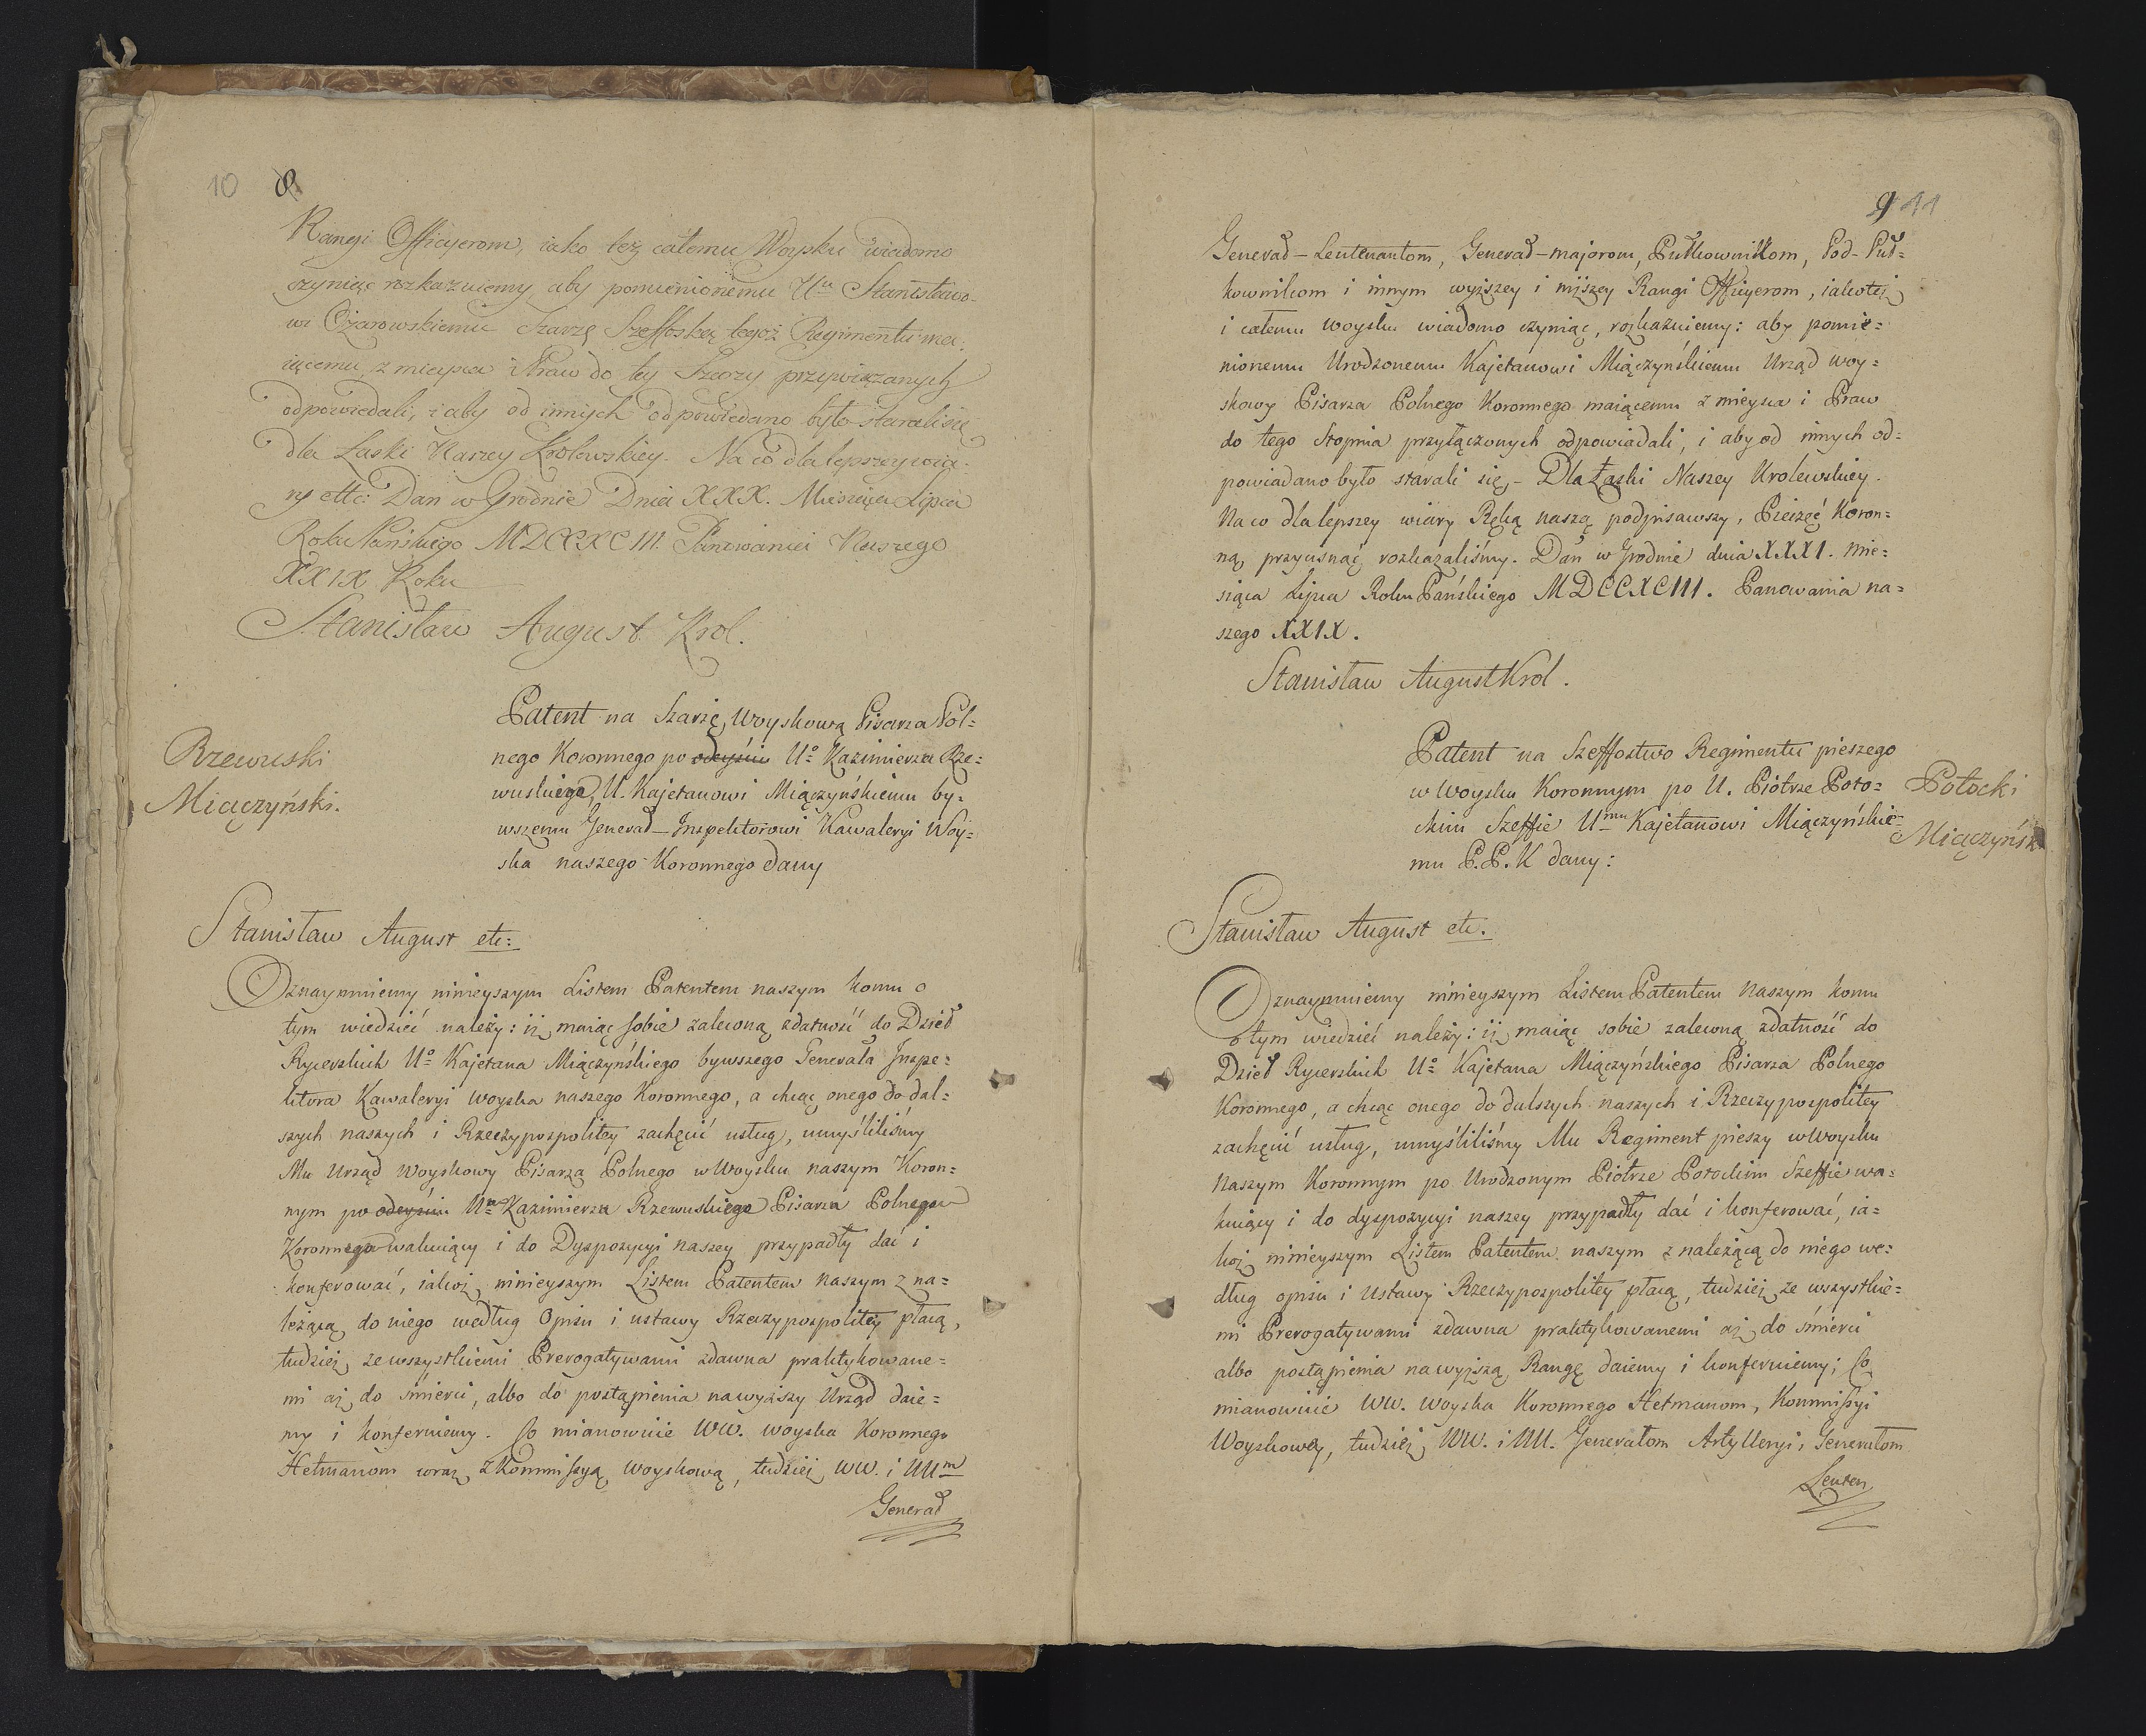 10 8
Rangi Officyerom, iako też całemu Woysku wiadomo
czyniąc rozkazuiemy, aby pomienionemu Uu Stanisławo-
wi Ożarowskiemu Szarzę Szeffoską tegoż Regimentu ma-
iącemu, z mieysca i Praw do tey Szarzy przywiązanych
odpowiedali, i aby od innych odpowiedano było starali się
dla Łaski Naszey Krolewskiey. Na co dla lepszey wia-
ry ettc: Dan w Grodnie Dnia XXX. Miesiąca Lipca
Roku Pańskiego MDCCXCIII. Panowania Naszego
XXIX Roku
Stanisław August Krol.
Patent na Szarżę Woyskową Pisarza Pol=
nego Koronnego po odeyściu Uo Kazimierza Rze=
wuskiego, U. Kajetanowi Miączyńskiemu by=
wszemu Generał-Inspektorowi Kawaleryi Woy=
ska naszego Koronnego dany
Rzewuski
Miączyński.
Stanisław August etc:
Oznaymuiemy ninieyszym Listem Patentem naszym komu o
tym wiedzieć należy: iż maiąc sobie zaleconą zdatność do Dzieł
Rycerskich Uo Kajetana Miączyńskiego bywszego Generała Inspe=
ktora Kawaleryi woyska naszego Koronnego, a chcąc onego do dal=
szych naszych i Rzeczypospolitey zachęcić usług, umyśliliśmy
Mu Urząd Woyskowy Pisarza Polnego w Woysku naszym Koron=
nym po odeyściu Um Kazimierza Rzewuskiego Pisarza Polnego
Koronnego wakuiący i do Dyspozycyi naszey przypadły dać i
konferować, iakoż ninieyszym Listem Patentem naszym z na=
leżącą do niego według Opisu i ustawy Rzeczypospolitey płacą,
tudzież ze wszystkiemi Prerogatywami zdawna praktykowane=
mi aż do śmierci, albo do postąpienia na wyższy Urząd daie=
my i konferuiemy. Co mianowicie WW. woyska Koronnego
Hetmanom wraz z Kommissyą woyskową, tudzież WW. i UUm
Generał
9 11
Generał-Leutenantom, Generał-majorom, Pułkownikom, Pod-Puł=
kownikom i innym wyższey i niższey Rangi Officyerom, iakoteż
i całemu woysku wiadomo czyniąc, rozkazuiemy: aby pomie=
nionemu Urodzonemu Kajetanowi Miączyńskiemu Urząd woy=
skowy Pisarza Polnego Koronnego maiącemu z mieysca i Praw
do tego Stopnia przyłączonych odpowiadali, i aby od innych od=
powiadano było starali się,- Dla Łaski Naszey Krolewskiey.
Na co dla lepszey wiary Ręką naszą podpisawszy, Pieczęć Koron=
ną przycisnąć rozkazaliśmy. Dan w Grodnie dnia XXXI. Mie=
siąca Lipca Roku Pańskiego MDCCXCIII. Panowania na=
szego XXIX.
Stanisław August Krol.
Patent na Szeffostwo Regimentu pieszego
w Woysku Koronnym po U. Piotrze Poto=
ckim Szeffie Umu Kajetanowi Miączyńskie=
mu P.P.K dany:
Potocki
Miączyńsk
Stanisław August etc.
Oznaymuiemy ninieyszym Listem Patentem Naszym komu
o tym wiedzieć należy: iż maiąc sobie zaleconą zdatność do
Dzieł Rycerskich Uo Kajetana Miączyńskiego Pisarza Polnego
Koronnego, a chcąc onego do dalszych naszych i Rzeczypospolitey
zachęcić usług, umyśliliśmy Mu Regiment pieszy w Woysku
Naszym Koronnym po Urodzonym Piotrze Potockim Szeffie wa=
kuiący i do dyspozycyi naszey przypadły dać i konferować, ia=
koż ninieyszym Listem Patentem naszym z należącą do niego we=
dług opisu i Ustawy Rzeczypospolitey płacą, tudzież ze wszystkie=
mi Prerogatywami zdawna praktykowanemi aż do śmierci
albo postąpienia na wyższą Rangę daiemy i konferuiemy; Co
mianowicie WW. woyska Koronnego Hetmanom, Kommissyi
Woyskowey, tudzież WW. i UU. Generałom Artylleryi, Generałom
Leuten